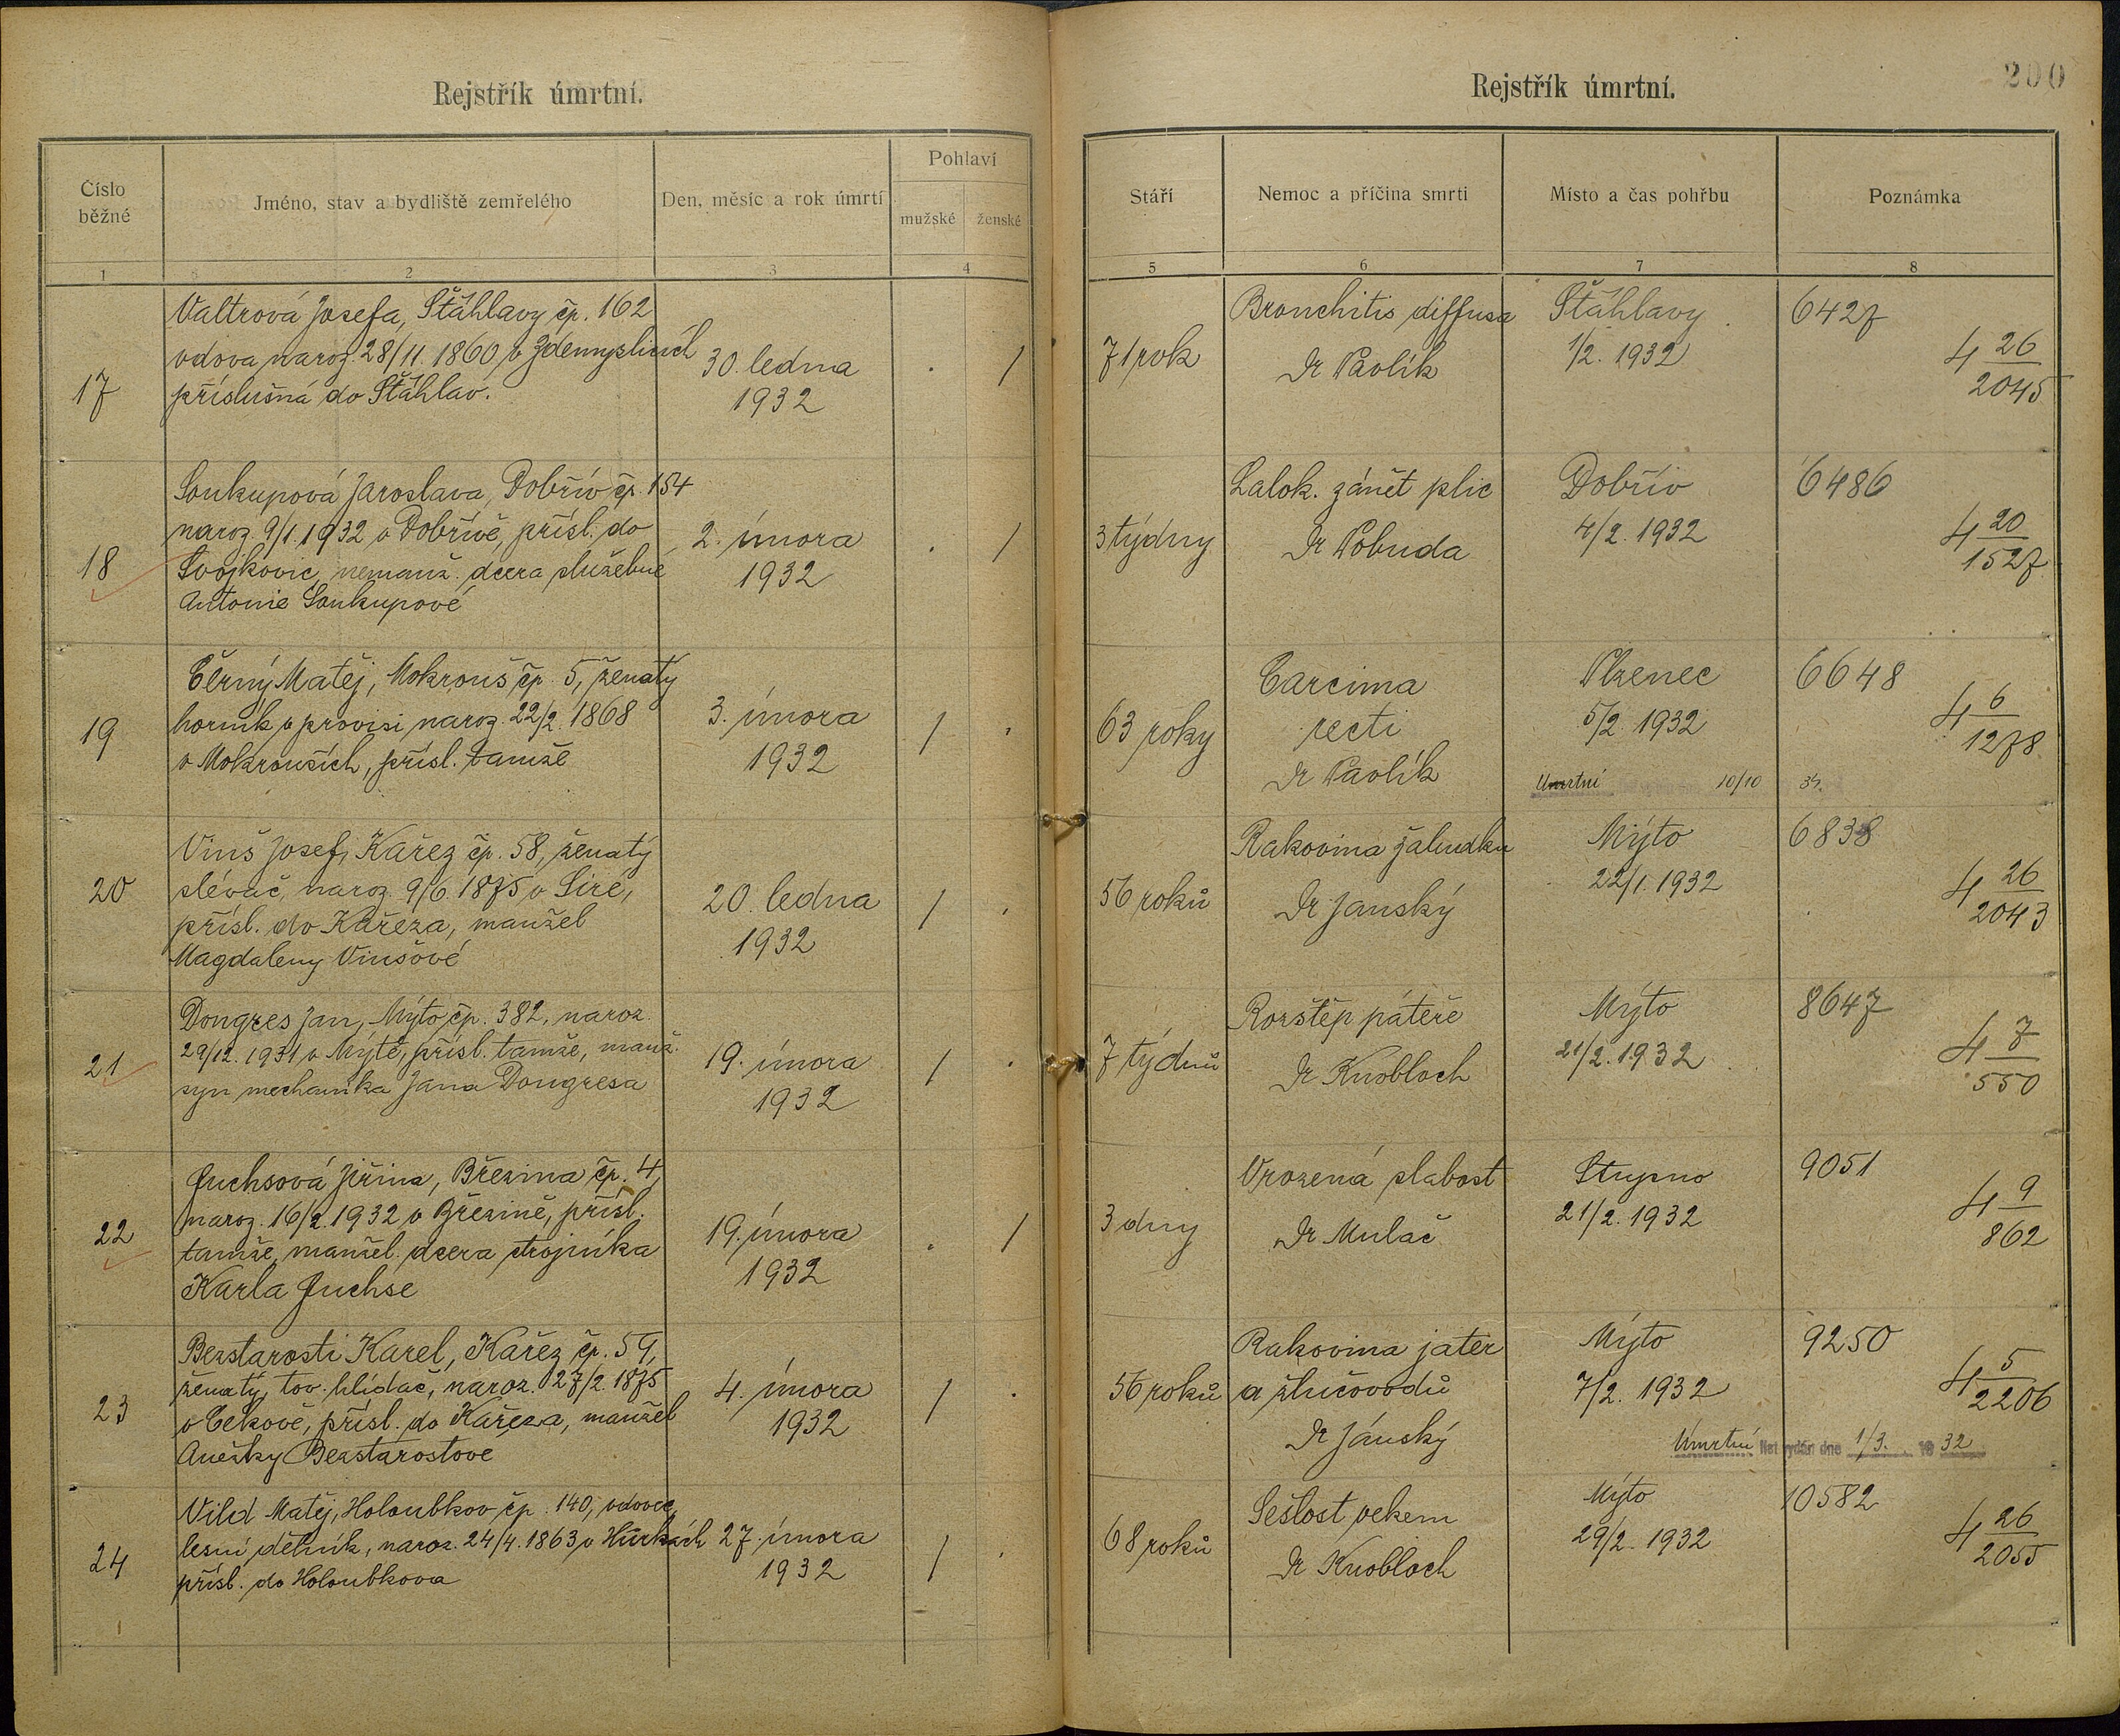 Rejstřík úmrtní.
Číslo běžné
Jméno, stav a bydliště zemřelého
Den, měsíc a rok úmrtí
Pohlaví
mužské
ženské
1 2 3 4
17
Valtrová Josefa, Šťáhlavy čp. 162
vdova naroz. 28/11. 1860 v Zdemyslicích
příslušná do Šťáhlav.
30. ledna
1932
. /
18
Soukupová Jaroslava, Dobřív čp. 154
naroz. 9/1. 1932 v Dobřívě, přísl. do
Svojkovic, nemanž. dcera služebné
Antonie Soukupové
2. února
1932
. /
19
Černý Matěj, Mokrouš čp. 5, ženatý
horník v provisi naroz. 22/2. 1868
v Mokrouších, přísl. tamže
3. února
1932
/ .
20
Vinš Josef, Kařez čp. 58, ženatý
slévač, naroz. 9/6. 1875 v Siré,
přísl. do Kařeza, manžel
Magdaleny Vinšové
20. ledna
1932
/ .
21
Dongres Jan, Mýto čp. 382, naroz.
29/12. 1931 v Mýtě, přísl. tamže, manž.
syn mechanika Jana Dongresa
19. února
1932
/ .
22
Fuchsová Jiřina, Březina čp. 4,
naroz. 16/2. 1932 v Březině, přísl.
tamže, manžel. dcera strojníka
Karla Fuchse
19. února
1932
. /
23
Bezstarosti Karel, Kařez čp. 59,
ženatý, tov. hlídač, naroz. 27/2. 1875
v Cekově, přísl. do Kařeza, manžel
Anežky Bezstarostove
4. února
1932
/ .
24
Vild Matěj, Holoubkov čp. 140, vdovec,
lesní dělník, naroz. 24/4. 1863 v Hůrkách
přísl. do Holoubkova
27. února
1932
/ .
Rejstřík úmrtní.
200
Stáří
Nemoc a příčina smrti
Místo a čas pohřbu
Poznámka
5 6 7 8
71 rok
Bronchitis diffusa
Dr Pavlík
Šťáhlavy
1/2. 1932
6427
4 26
2045
3 týdny
Lalok. zánět plic
Dr Pobuda
Dobřív
4/2. 1932
6486
4 20
1527
63 roky
Carcima
recti
Dr Pavlík
Plzenec
5/2 1932
Úmrtní 10/10 34.
6648
4 6
1278
56 roků
Rakovina žaludku
Dr Janský
Mýto
22/1. 1932
6838
4 26
2043
7 týdnů
Rozštěp páteře
Dr Knobloch
Mýto
21/2. 1932
8647
4 7
550
3 dny
Vrozená slabost
Dr Mulač
Stupno
21/2. 1932
9051
4 9
862
56 roků
Rakovina jater
a žlučovodů
Dr Jánský
Mýto
7/2. 1932
9250
4 5
2206
Úmrtní list vydán dne 1/3. 19 32
68 roků
Sešlost vekem
Dr Knobloch
Mýto
29/2. 1932
10582
4 26
2055